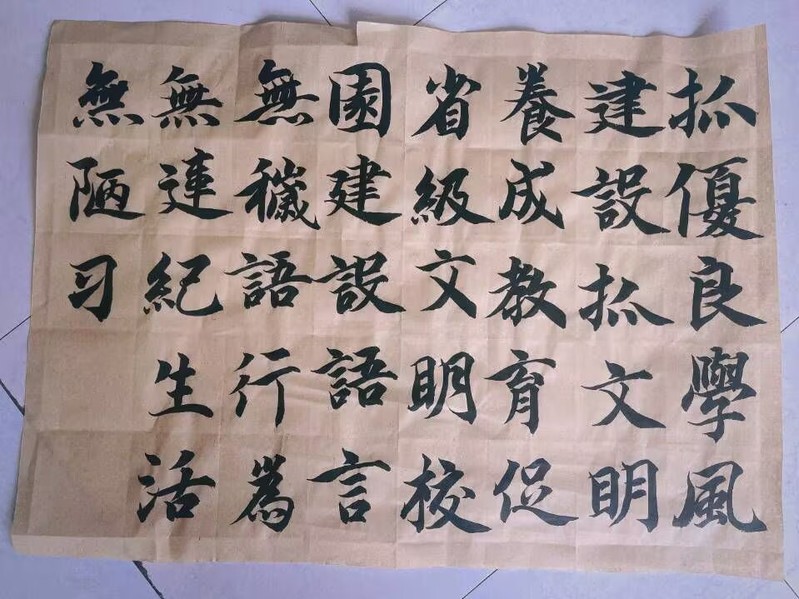 抓優良學風
建設抓文明
養成教育促
省級文明校
園建設語言
無穢語行為
無違紀生活
無陋习